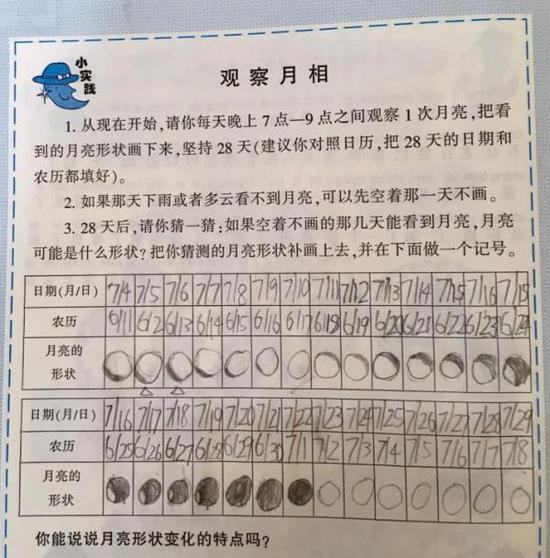 小实践
观察月相
1. 从现在开始,请你每天晚上 7 点—9 点之间观察 1 次月亮,把看
到的月亮形状画下来,坚持 28 天(建议你对照日历,把 28 天的日期和
农历都填好)。
2. 如果那天下雨或者多云看不到月亮,可以先空着那一天不画。
3. 28 天后,请你猜一猜:如果空着不画的那几天能看到月亮,月亮
可能是什么形状?把你猜测的月亮形状补画上去,并在下面做一个记号。
日期(月/日) 7/4 7/5 7/6 7/7 7/8 7/9 7/10 7/11 7/12 7/13 7/14 7/15 7/16 7/15
农历 6/11 6/2 6/13 6/14 6/15 6/16 6/17 6/18 6/19 6/20 6/21 6/22 6/23 6/24
月亮的
形状
日期(月/日) 7/16 7/17 7/18 7/19 7/20 7/21 7/22 7/23 7/24 7/25 7/26 7/27 7/28 7/29
农历 6/25 6/26 6/27 6/28 6/29 6/30 7/1 7/2 7/3 7/4 7/5 7/6 7/7 7/8
月亮的
形状
你能说说月亮形状变化的特点吗?